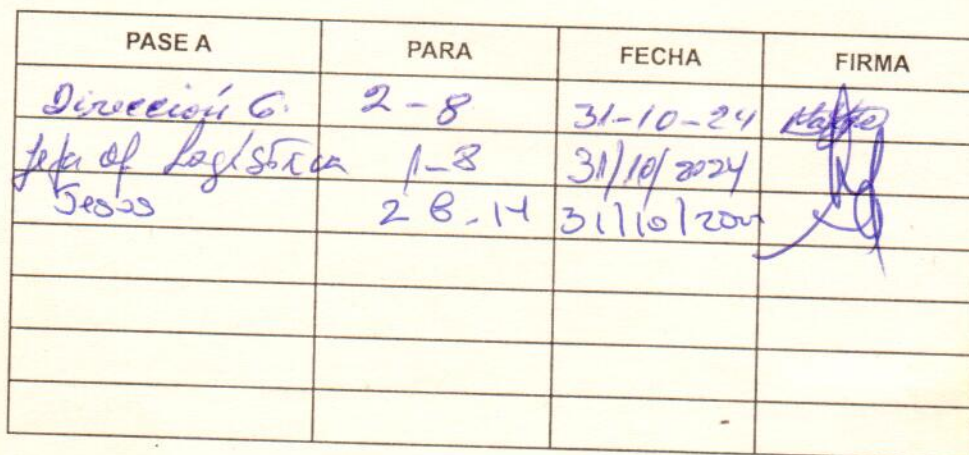 PASE A PARA FECHA FIRMA
Dirección G. 2-8 31-10-24
Jefa of Logística 1-8 31/10/2024
Jesus 2 8-14 31/10/